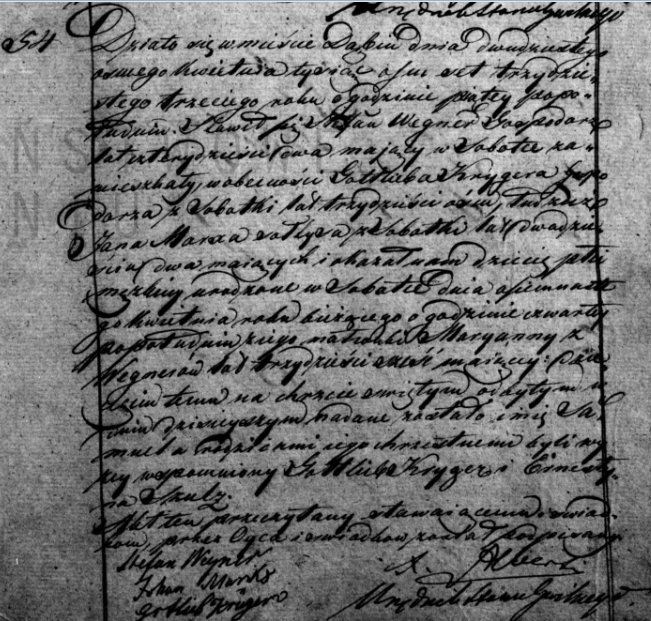 Urzędnik Stanu Cywilnego
54 Działo się w mieście Dąbiu dnia dwudziestego
osmego Kwietnia tysiąc osm set trzydzie-
stego trzeciego roku o godzinie piątey popo-
łudniu. Stawił się Stefan Wegner Gospodarz
lat czterydzieści dwa maiący w Sobotce za-
mieszkały, w obecności Gottlieba Krygera Gospo
darza z Sobotki lat trzydzieści ośm, tudzież
Jana Marxa sołtysa z Sobotki lat dwadzie
ścia dwa maiących i okazał nam dziecię płci
męzkiey urodzone w Sobotce dnia ośmnaste
go Kwietnia roku bieżącego o godzinie czwartey
popołudniu z iego małżonki Maryanny z
Wegnerów lat trzydzieści sześć maiącey:
dziecięciu temu na chrzcie świętym odbytym w
dniu dzisieyszym nadane zostało imię Sa
muel a rodzicami iego chrzestnemi byli wy
żey wspomniony Gottlieb Kryger i Ernesty
na Szulz.
Akt ten przeczytany stawaiącemu i świad
kom, przez Oyca i świadków został podpisany
Stefan Wegner
Johan Marks
Gottlieb Krüger
X. Alberti
Urzędnik Stanu Cywilnego